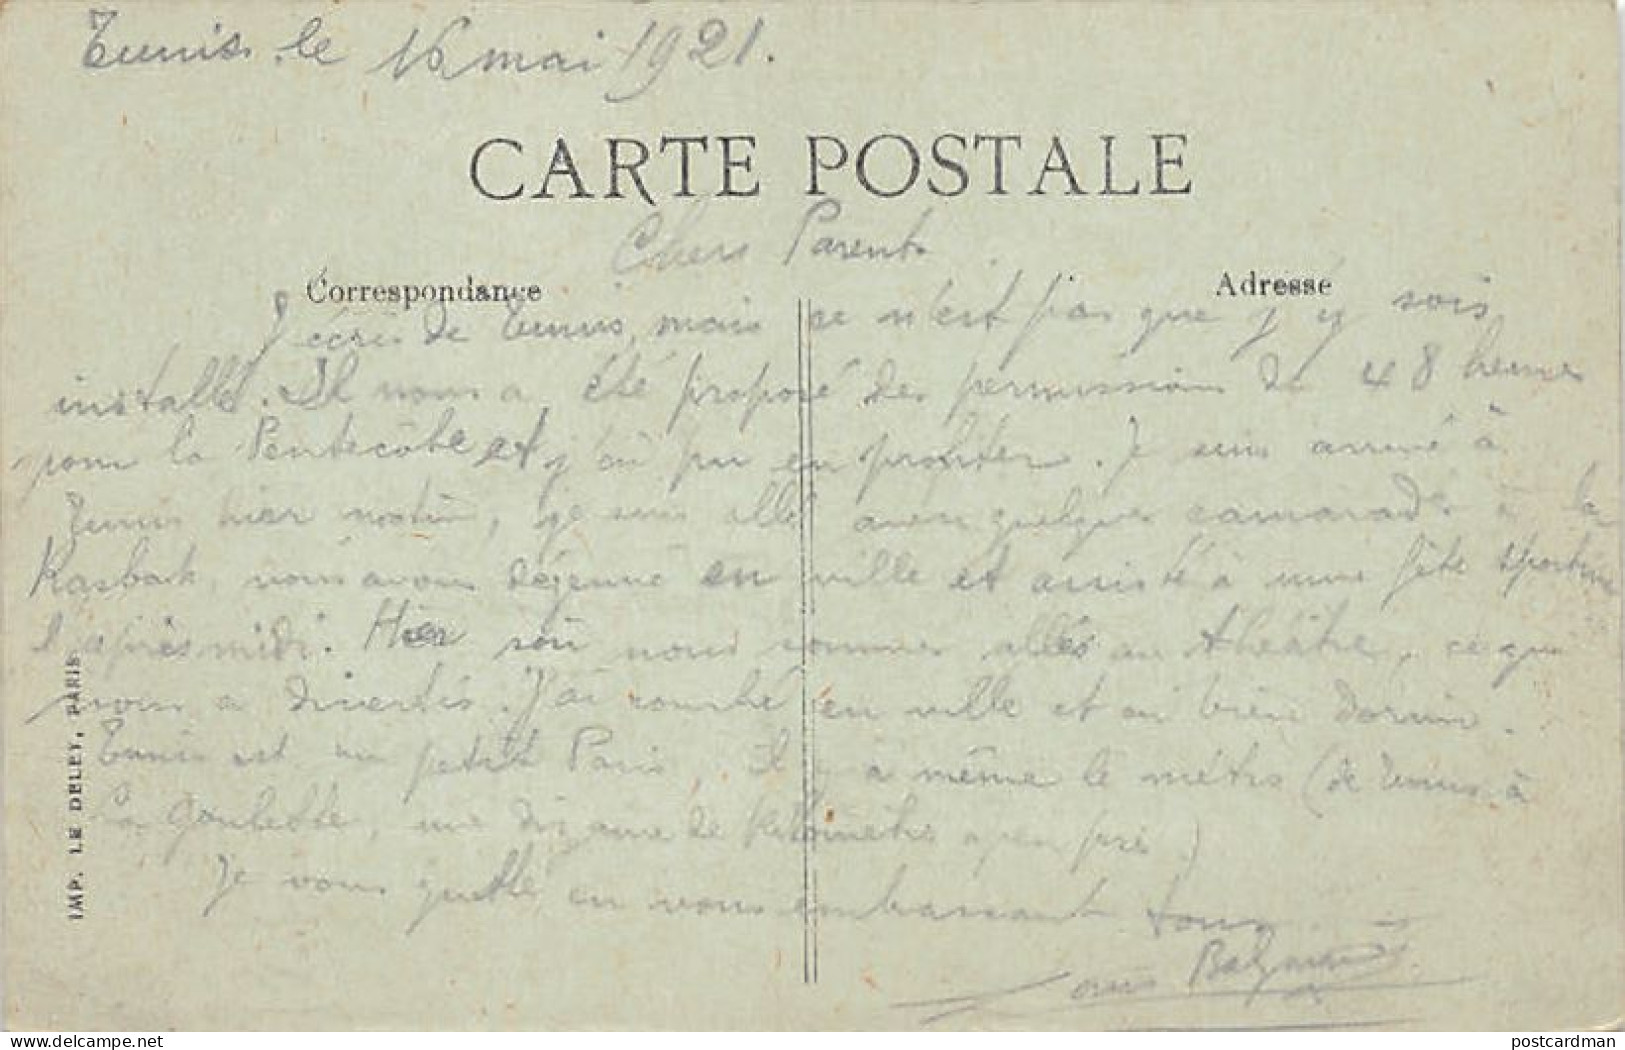 Tunis le 16 mai 1921.
CARTE POSTALE
Chers Parents
Correspondance
Adresse
J'écris de Tunis, mais ce n'est pas que j'y sois
installé. Il nous a été proposé des permissions de 48 heures
pour la Pentecôte et j'ai pu en profiter. Je suis arrivé à
Tunis hier matin, je suis allé avec quelques camarades à la
Kasbah, nous avons déjeuné en ville et assisté à une fête sportive
l'après midi. Hier soir nous sommes allés au théâtre, ce qui
nous a divertis. J'ai couché en ville et ai bien dormi.
Tunis est un petit Paris, il y a même le métro (de Tunis à
la Goulette, une dizaine de kilomètres à peu près)
Je vous quitte en vous embrassant tous
Louis
IMP. LE DELEY, PARIS
delcampe.net
postcardman